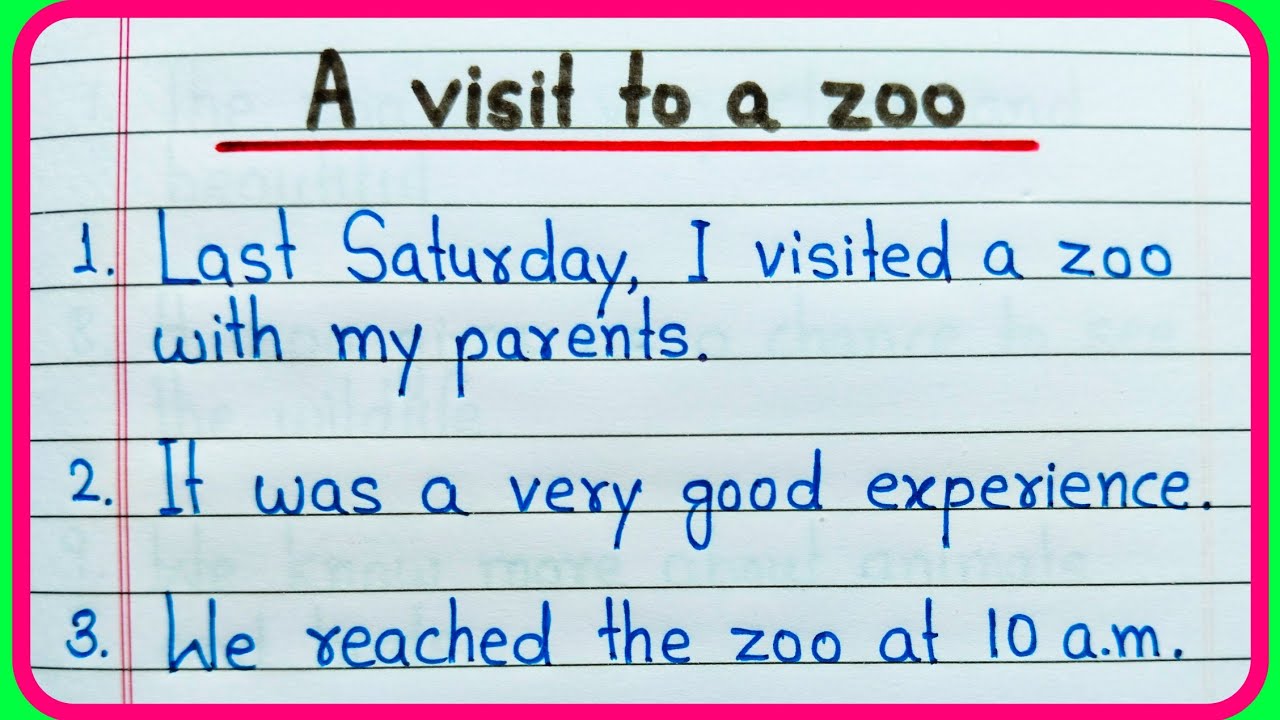 A visit to a zoo
1. Last Saturday, I visited a zoo
with my parents.
2. It was a very good experience.
3. We reached the zoo at 10 a.m.